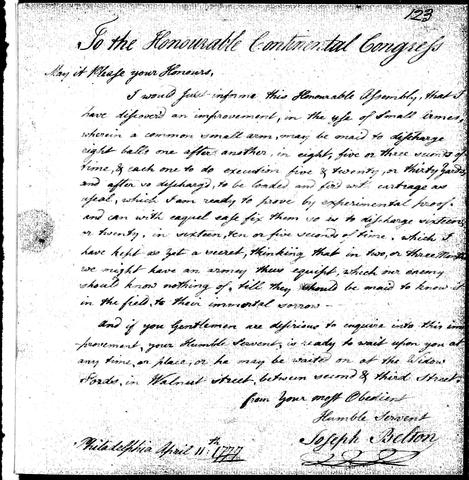 123
To the Honourable Continental Congress
May it Please your Honours,
I would Just informe this Honourable Assembly, that I
have discoverd an improvement, in the use of Small Armes,
wherein a common small arm, may be maid to discharge
eight balls one after another, in eight, five or three seconds of
time, & each one to do execution five & twenty, or thirty yards,
and after so discharg'd, to be loaded and fire'd with cartrage as
usal, which I am ready to prove by experimental proof.
and can with eaquel ease fix them so as to discharge sixteen
or twenty, in sixteen, ten or five seconds of time, which I
have kept as yet a secret, thinking that in two, or three Months
we might have an armey thus equipt, which our enemy
should know nothing of, till they should be maid to know it
in the field, to their immortal sorrow—
And if you Gentlemen are desirious to enquire into this im
provement, your Humble Servent, is ready to wait upon you at
any time, or place, or he may be waited on at the Widow
Fords, in Walnut Street, between second & third Street.
from Your most Obedient
Humble Servent
Joseph Belton
Philadelphia April 11th 1777